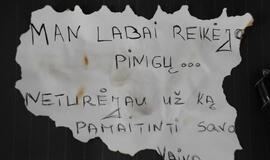 MAN LABAI REIKĖJO
PINIGŲ...
NETURĖJAU UŽ KĄ
PAMAITINTI SAVO
VAIKO